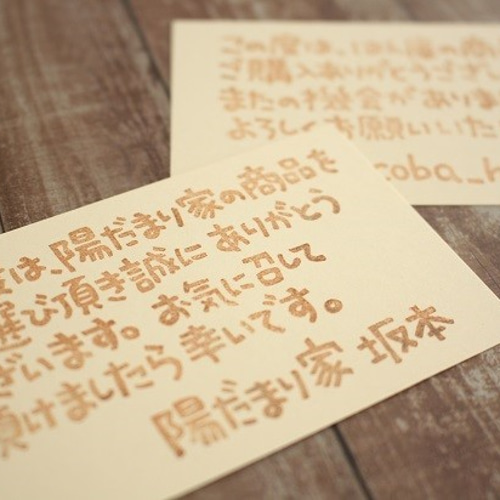 この度は、ほん屋の商
ご購入ありがとうござい
またの機会がありま
よろしくお願いいた
coba_h
度は、陽だまり家の商品を
選び頂き誠にありがとう
ざいます。お気に召して
頂けましたら幸いです。
陽だまり家 坂本